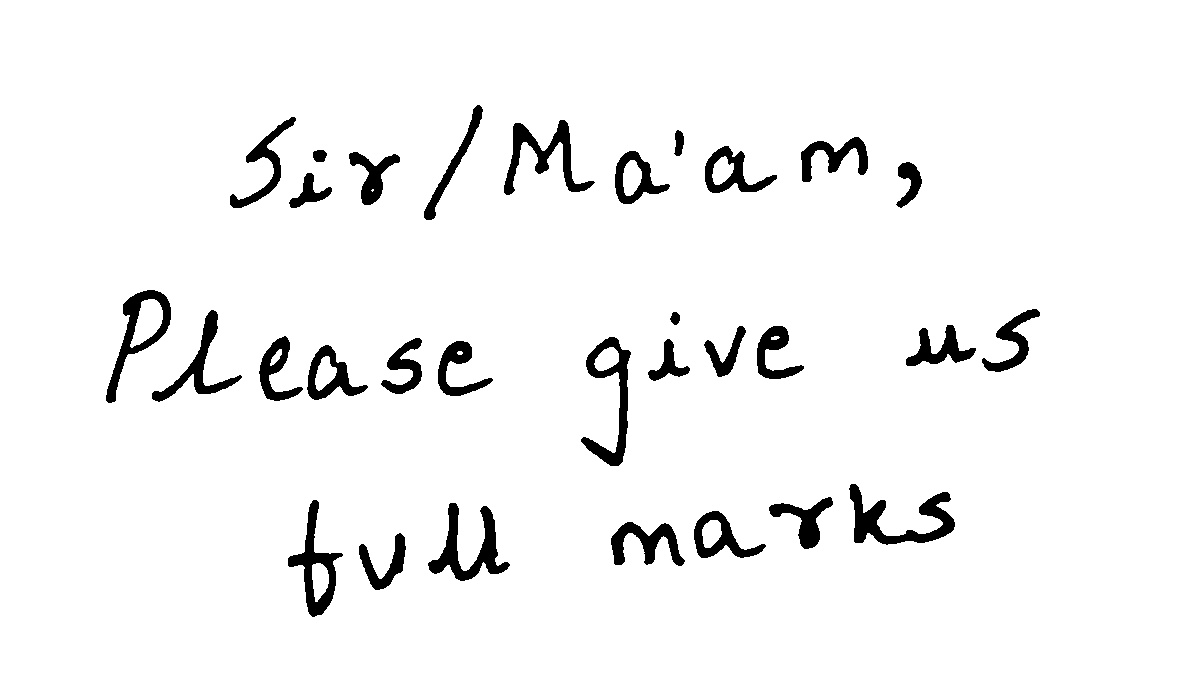 Sir/Ma'am,
Please give us
full marks